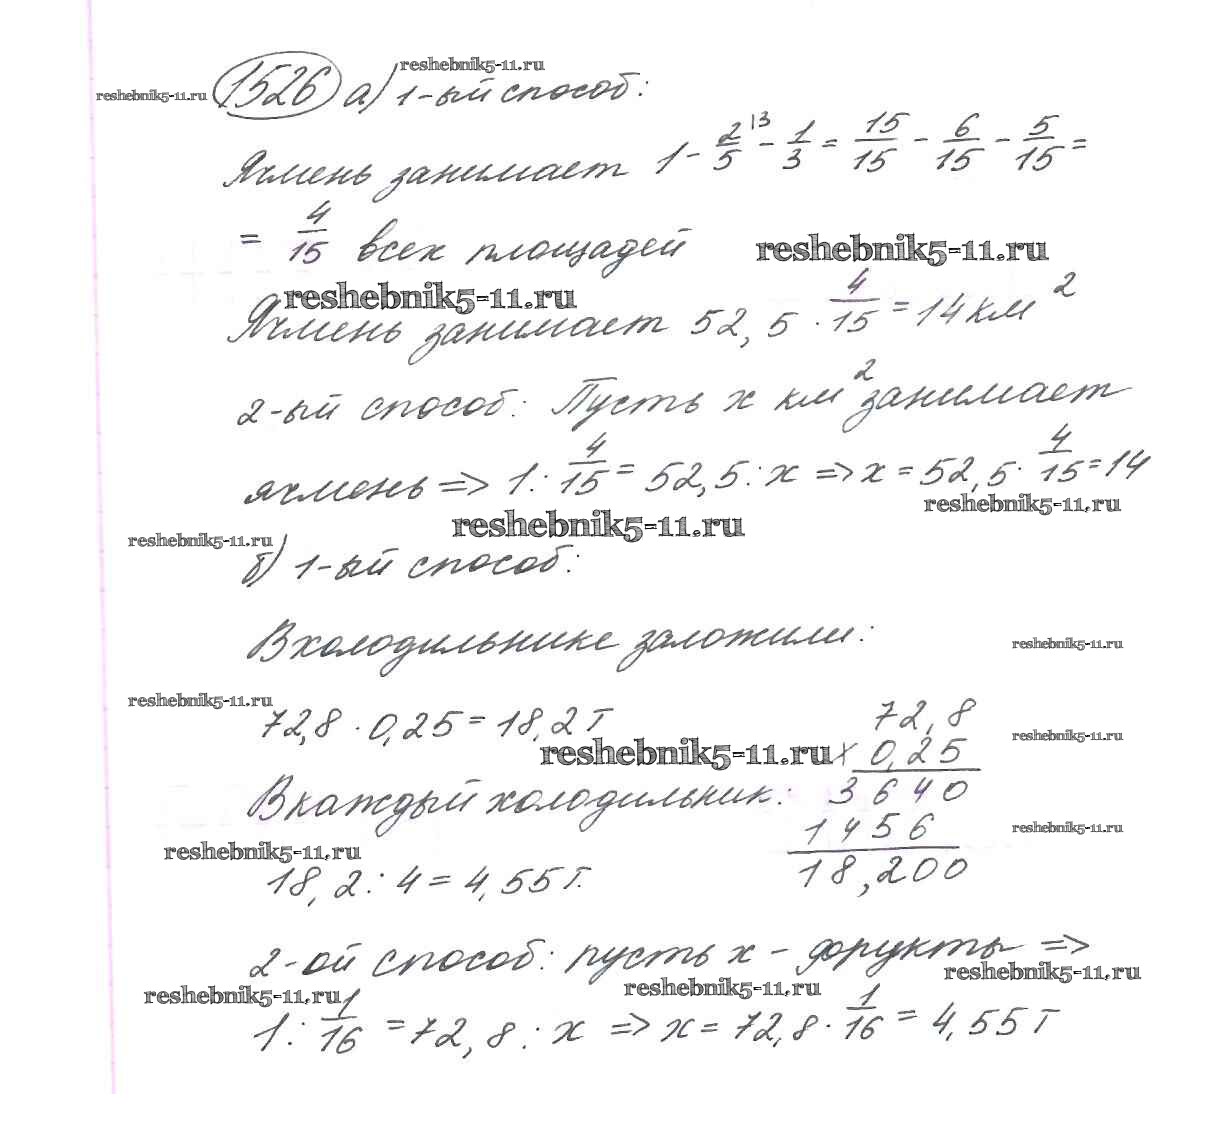 reshebnik5-11.ru
reshebnik5-11.ru
1526 а) 1-ый способ:
Ячмень занимает 1 - 2/5 - 1/3 = 15/15 - 6/15 - 5/15 =
= 4/15 всех площадей
reshebnik5-11.ru
reshebnik5-11.ru
Ячмень занимает 52,5 · 4/15 = 14 км²
2-ый способ: Пусть х км² занимает
ячмень => 1 : 4/15 = 52,5 : х => х = 52,5 · 4/15 = 14
reshebnik5-11.ru
reshebnik5-11.ru
reshebnik5-11.ru
б) 1-ый способ:
В холодильнике заложили:
reshebnik5-11.ru
reshebnik5-11.ru
72,8 · 0,25 = 18,2 т
72,8
reshebnik5-11.ru
reshebnik5-11.ru
х 0,25
В каждый холодильник:
3640
1456
reshebnik5-11.ru
reshebnik5-11.ru
18,200
18,2 : 4 = 4,55 т.
2-ой способ: пусть х - фрукты =>
reshebnik5-11.ru
reshebnik5-11.ru
reshebnik5-11.ru
1 : 1/16 = 72,8 : х => х = 72,8 · 1/16 = 4,55 т